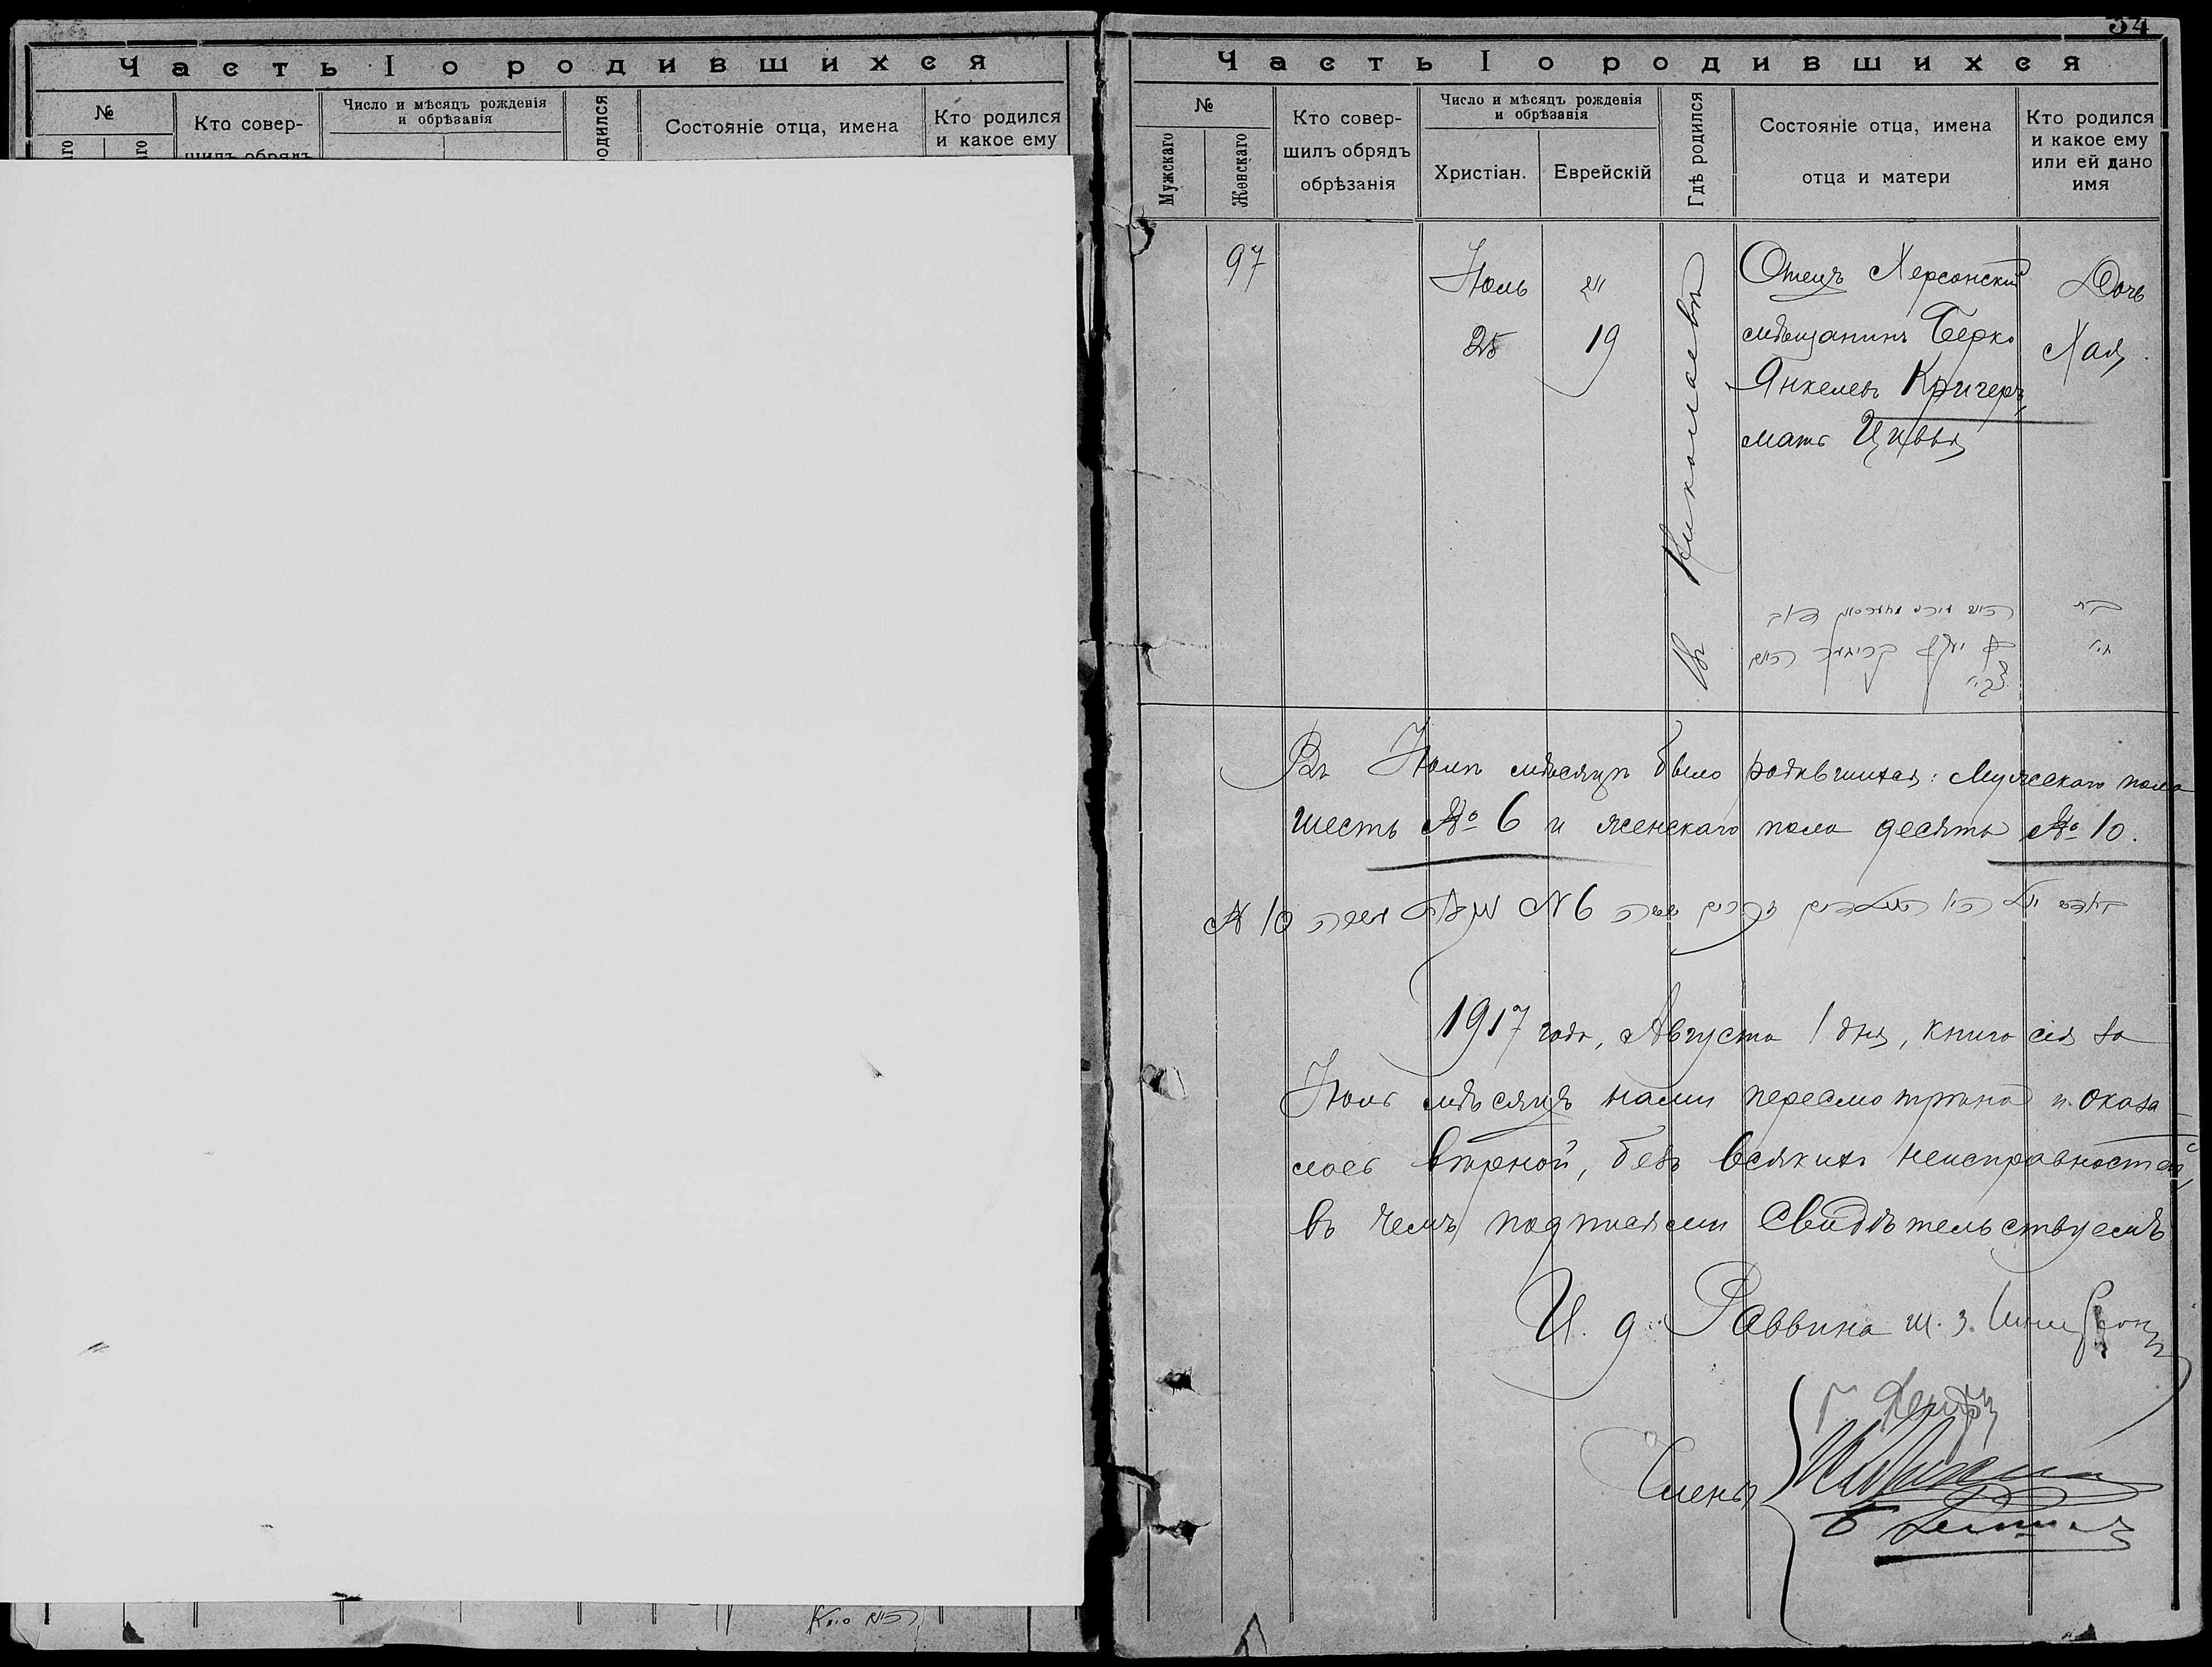 Часть I о родившихся
№
Кто совер-
Число и мѣсяцъ рожденія
и обрѣзанія
одился
Состояніе отца, имена
Кто родился
и какое ему
34
Часть I о родившихся
№
Мужскаго
Женскаго
Кто совер-
шилъ обрядъ
обрѣзанія
Число и мѣсяцъ рожденія
и обрѣзанія
Христіан.
Еврейскій
Гдѣ родился
Состояніе отца, имена
отца и матери
Кто родился
и какое ему
или ей дано
имя
97
Іюль
25
19
Въ Николаевѣ
Отецъ Херсонскій
мѣщанинъ Берко
Янкелевъ Кригеръ,
мать Цивья
Дочь
Хая
Въ Іюлѣ мѣсяцѣ было родившихся: Мужскаго пола
шесть № 6 и женскаго пола десять № 10.
1917 года, Августа 1 дня, книга сія за
Іюль мѣсяцъ нами пересмотрѣна и оказа-
лась вѣрной, безъ всякихъ неисправностей,
въ чемъ подписями свидѣтельствуемъ
И. д. Раввина
Члены